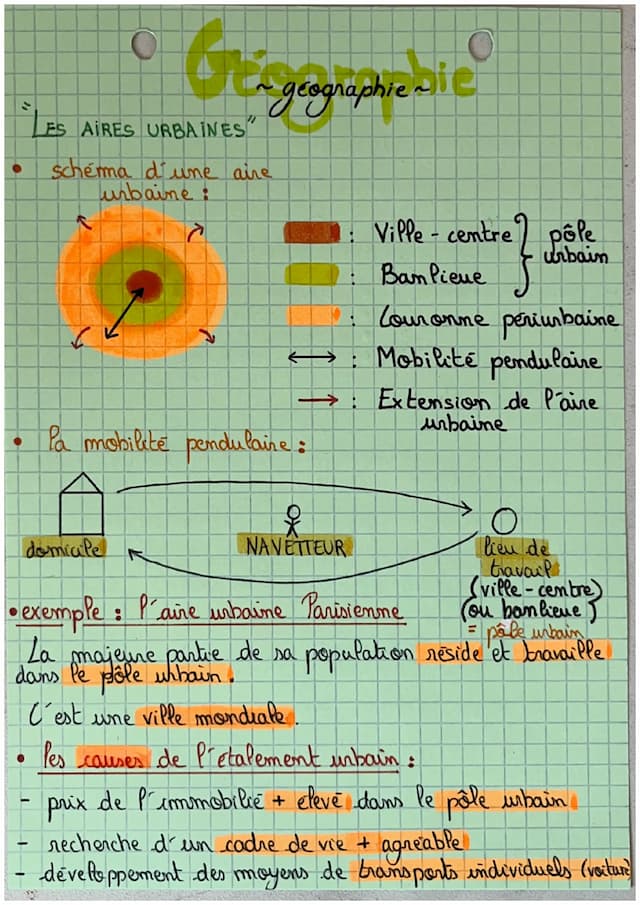 Géographie
~ géographie ~
"LES AIRES URBAINES"
• schéma d'une aire
urbaine :
: Ville-centre
: Banlieue
pôle
urbain
: Couronne périurbaine
: Mobilité pendulaire
: Extension de l'aire
urbaine
• la mobilité pendulaire :
domicile
NAVETTEUR
lieu de
travail
(ville-centre)
(ou banlieue)
= pôle urbain
• exemple : l'aire urbaine Parisienne
La majeure partie de sa population réside et travaille
dans le pôle urbain.
C'est une ville mondiale.
• les causes de l'étalement urbain :
- prix de l'immobilié + elevé dans le pôle urbain
- recherche d'un cadre de vie + agréable
- développement des moyens de transports individuels (voiture)